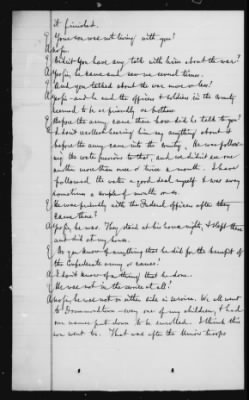 it finished.
Q Your son was not living with you?
A No sir.
Q Did you have any talk with him about the war?
A Yes sir, he came and saw me several times.
Q And you talked about the war more or less?
A Yes sir - and he and the officers & soldiers in the county
seemed to be as friendly as brothers.
Q Before the army came there how did he talk to you?
A I don't recollect hearing him say anything about it
before the army came into the county. He was follow-
ing the water previous to that, and we didn't see one
another more than once or twice a month. I have
followed the water a good deal myself & was away
sometimes a couple of months or so.
Q He was friendly with the Federal officers after they
came there?
A Yes sir, he was. They staid at his house night, & slept there
and did at my house.
Q Do you know of anything that he did for the benefit of
the Confederate army or cause?
A I don't know of a thing that he done.
Q He was not in the service at all?
A No sir, he was not on either side in service. We all went
to Drummondtown - every one of my children, & had
our names put down to be enrolled. I think this
we went to. That was after the Union troops